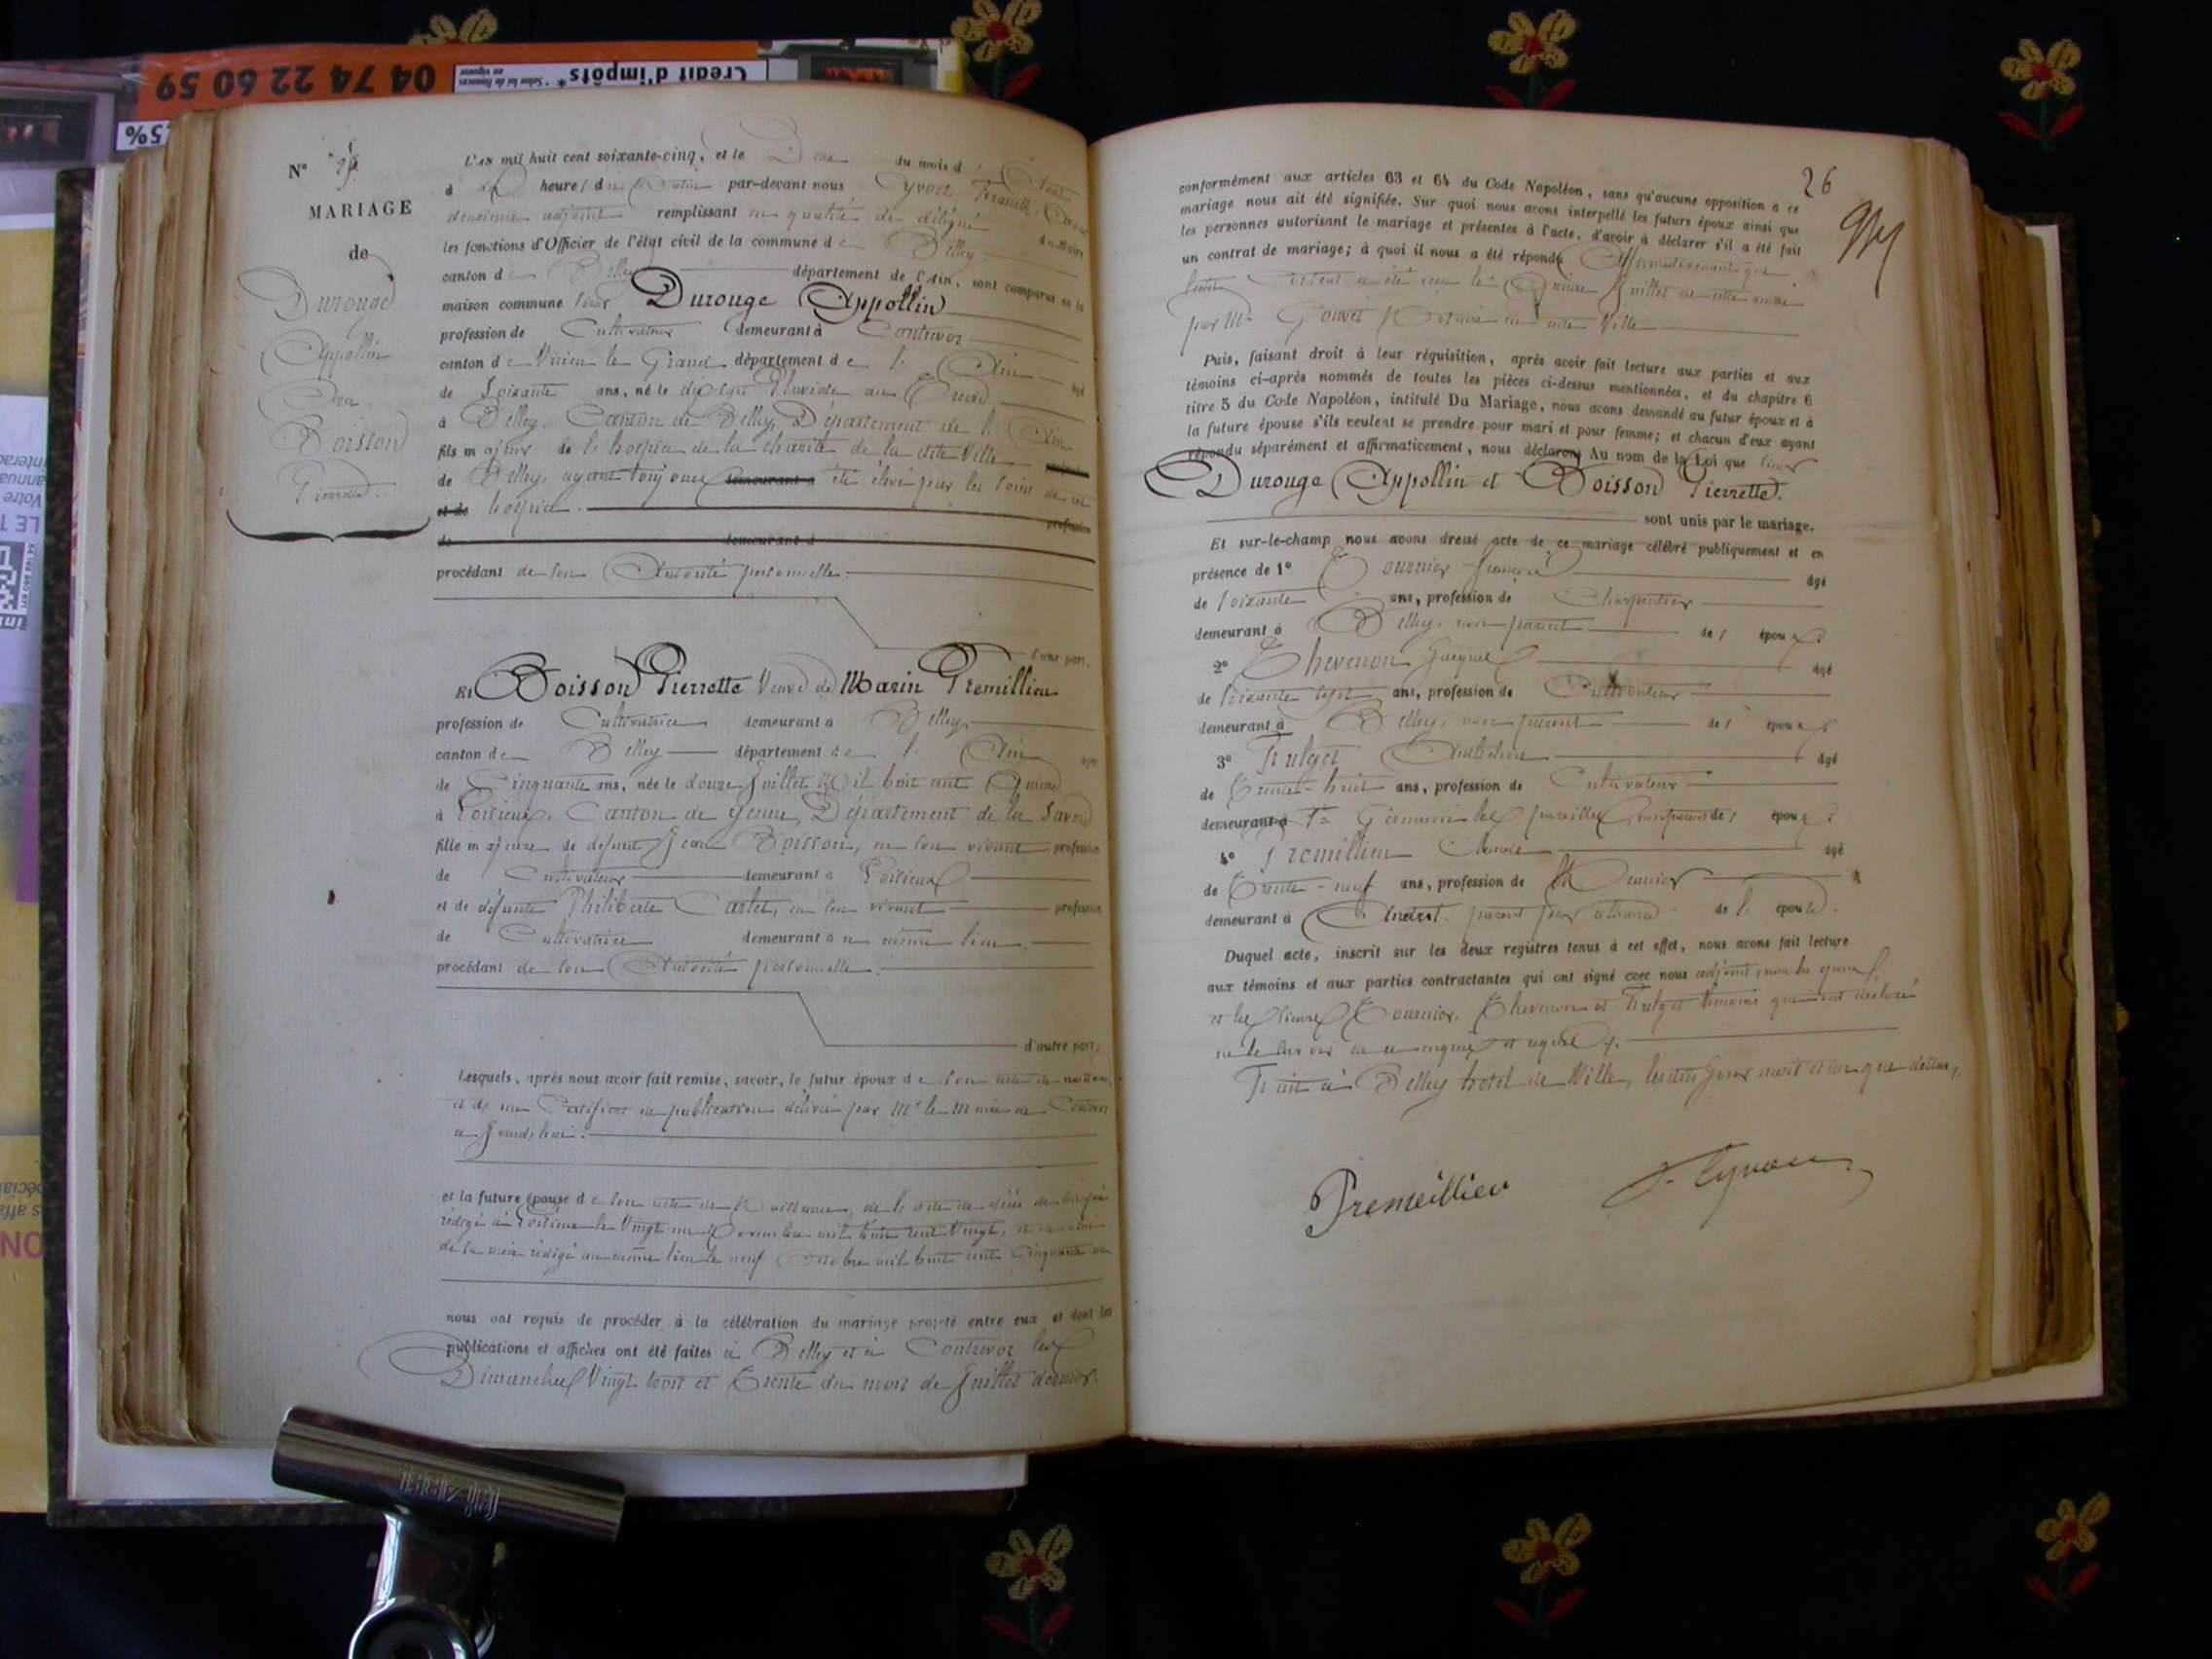 04 74 22 60 59
Crédit d'impôts* * Selon loi de finances en vigueur
N° 25
MARIAGE
de
Durouge
Appollin
Boisson
Pierrette.
L'an mil huit cent soixante-cinq, et le Deux du mois d' Août
à heures du Matin par-devant nous Yvoct
deuxième adjoint remplissant en qualité de délégué du Maire
les fonctions d'Officier de l'état civil de la commune de Belley,
canton de Belley département de l'Ain, sont comparus en la
maison commune sieur Durouge Appollin
profession de Cultivateur demeurant à Contrevoz
canton de Virieu le Grand département de l' Ain âgé
de Soixante ans, né le dix sept Pluviôse an Treize
à Belley, Canton de Belley, Département de l' Ain
fils majeur de l'hospice de la charité de la dite Ville profession
de Belley, ayant toujours demeurant à été élevé par les soins de cet
et de hospice. profession
de demeurant à
procédant de son Autorité personnelle.
d'une part.
Et Boisson Pierrette Veuve de Marin Premillieu
profession de Cultivatrice demeurant à Belley,
canton de Belley département de l' Ain âgée
de Cinquante ans, née le douze Juillet Mil huit cent Quinze
à Loisieux, Canton de Yenne, Département de la Savoie
fille majeure de défunt Jean Boisson, en son vivant profession
de Cultivateur demeurant à Loisieux
et de défunte Philiberte Carlet, en son vivant profession
de Cultivatrice demeurant à au même lieu.
procédant de son Autorité personnelle.
d'autre part.
Lesquels, après nous avoir fait remise, savoir, le futur époux de son acte de notoriété,
et d'un Certificat de publication délivré par Mr le Maire de Contrevoz
aujourd'hui.
et la future épouse de son acte de Naissance, de l'acte de décès de son père
rédigé à Loisieux le Vingt un Novembre mil huit cent Vingt, et de celui
de sa mère rédigé au même lieu le neuf Octobre mil huit cent Cinquante
nous ont requis de procéder à la célébration du mariage projeté entre eux et dont les
publications et affiches ont été faites à Belley et à Contrevoz les
Dimanches Vingt trois et Trente du mois de Juillet dernier.
26
conformément aux articles 63 et 64 du Code Napoléon, sans qu'aucune opposition à ce
mariage nous ait été signifiée. Sur quoi nous avons interpellé les futurs époux ainsi que
les personnes autorisant le mariage et présentes à l'acte, d'avoir à déclarer s'il a été fait
un contrat de mariage; à quoi il nous a été répondu Affirmativement que
ledit contrat a été reçu le Quinze Juillet de cette année
par Me Gouvet Notaire en cette Ville
Puis, faisant droit à leur réquisition, après avoir fait lecture aux parties et aux
témoins ci-après nommés de toutes les pièces ci-dessus mentionnées, et du chapitre 6
titre 5 du Code Napoléon, intitulé Du Mariage, nous avons demandé au futur époux et à
la future épouse s'ils veulent se prendre pour mari et pour femme; et chacun d'eux ayant
répondu séparément et affirmativement, nous déclarons Au nom de la Loi que sieur
Durouge Appollin et Boisson Pierrette.
sont unis par le mariage.
Et sur-le-champ nous avons dressé acte de ce mariage célébré publiquement et en
présence de 1° Tournier François âgé
de Soixante ans, profession de Charpentier
demeurant à Belley, non parent des époux
2° Thevenon Jacques âgé
de Soixante sept ans, profession de Cultivateur
demeurant à Belley, non parent des époux
3° Anthelme âgé
de Trente-huit ans, profession de Cultivateur
demeurant à St Germain les paroisses, non parent des époux
4° Premillieu Claude âgé
de Trente-neuf ans, profession de Meunier
demeurant à Andert. parent par alliance de l' épouse.
Duquel acte, inscrit sur les deux registres tenus à cet effet, nous avons fait lecture
aux témoins et aux parties contractantes qui ont signé avec nous adjoint, non les époux,
et les sieurs Tournier, Thevenon et témoins qui ont déclaré
ne le savoir de ce enquis et requis.
Fait à Belley hotel de Ville, lesdits jour mois et an que dessus.
Premeillieu